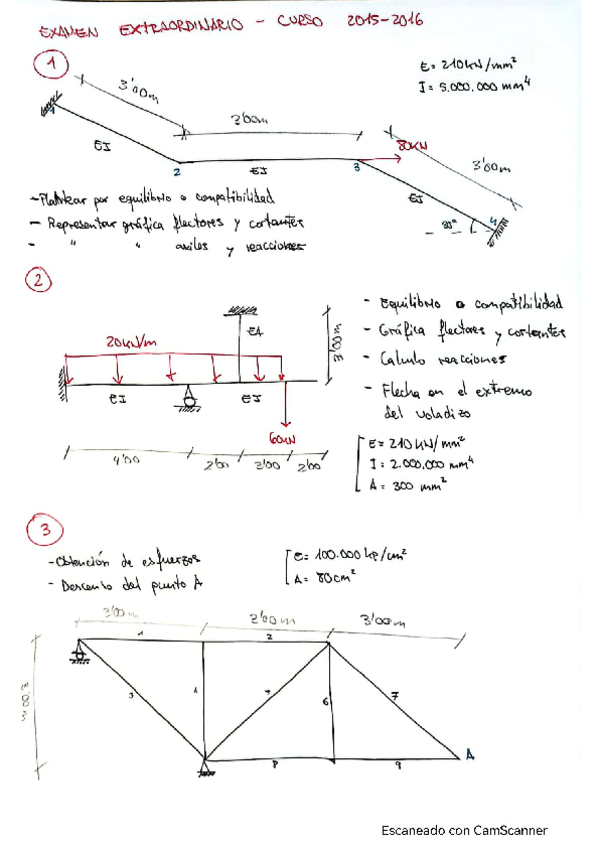 EXAMEN EXTRAORDINARIO - CURSO 2015-2016
1
E= 210 kN/mm²
I= 5.000.000 mm⁴
3'00m
3'00m
80KN
3'00m
EI
2
EI
3
EI
30°
4
- Plantear por equilibrio o compatibilidad
- Representar gráfica flectores y cortantes
- " " axiles y reacciones
2
20kN/m
EA
3'00m
EI
EI
60KN
4'00
2'00
2'00
2'00
- Equilibrio o compatibilidad
- Gráfica flectores y cortantes
- Calculo reacciones
- Flecha en el extremo
del voladizo
E= 210 KN/mm²
I= 2.000.000 mm⁴
A= 300 mm²
3
- Obtención de esfuerzos
- Descenso del punto A
E= 100.000 kp/cm²
A= 80cm²
3'00m
3'00m
3'00m
1
2
3'00m
3
4
6
7
8
9
A
Escaneado con CamScanner